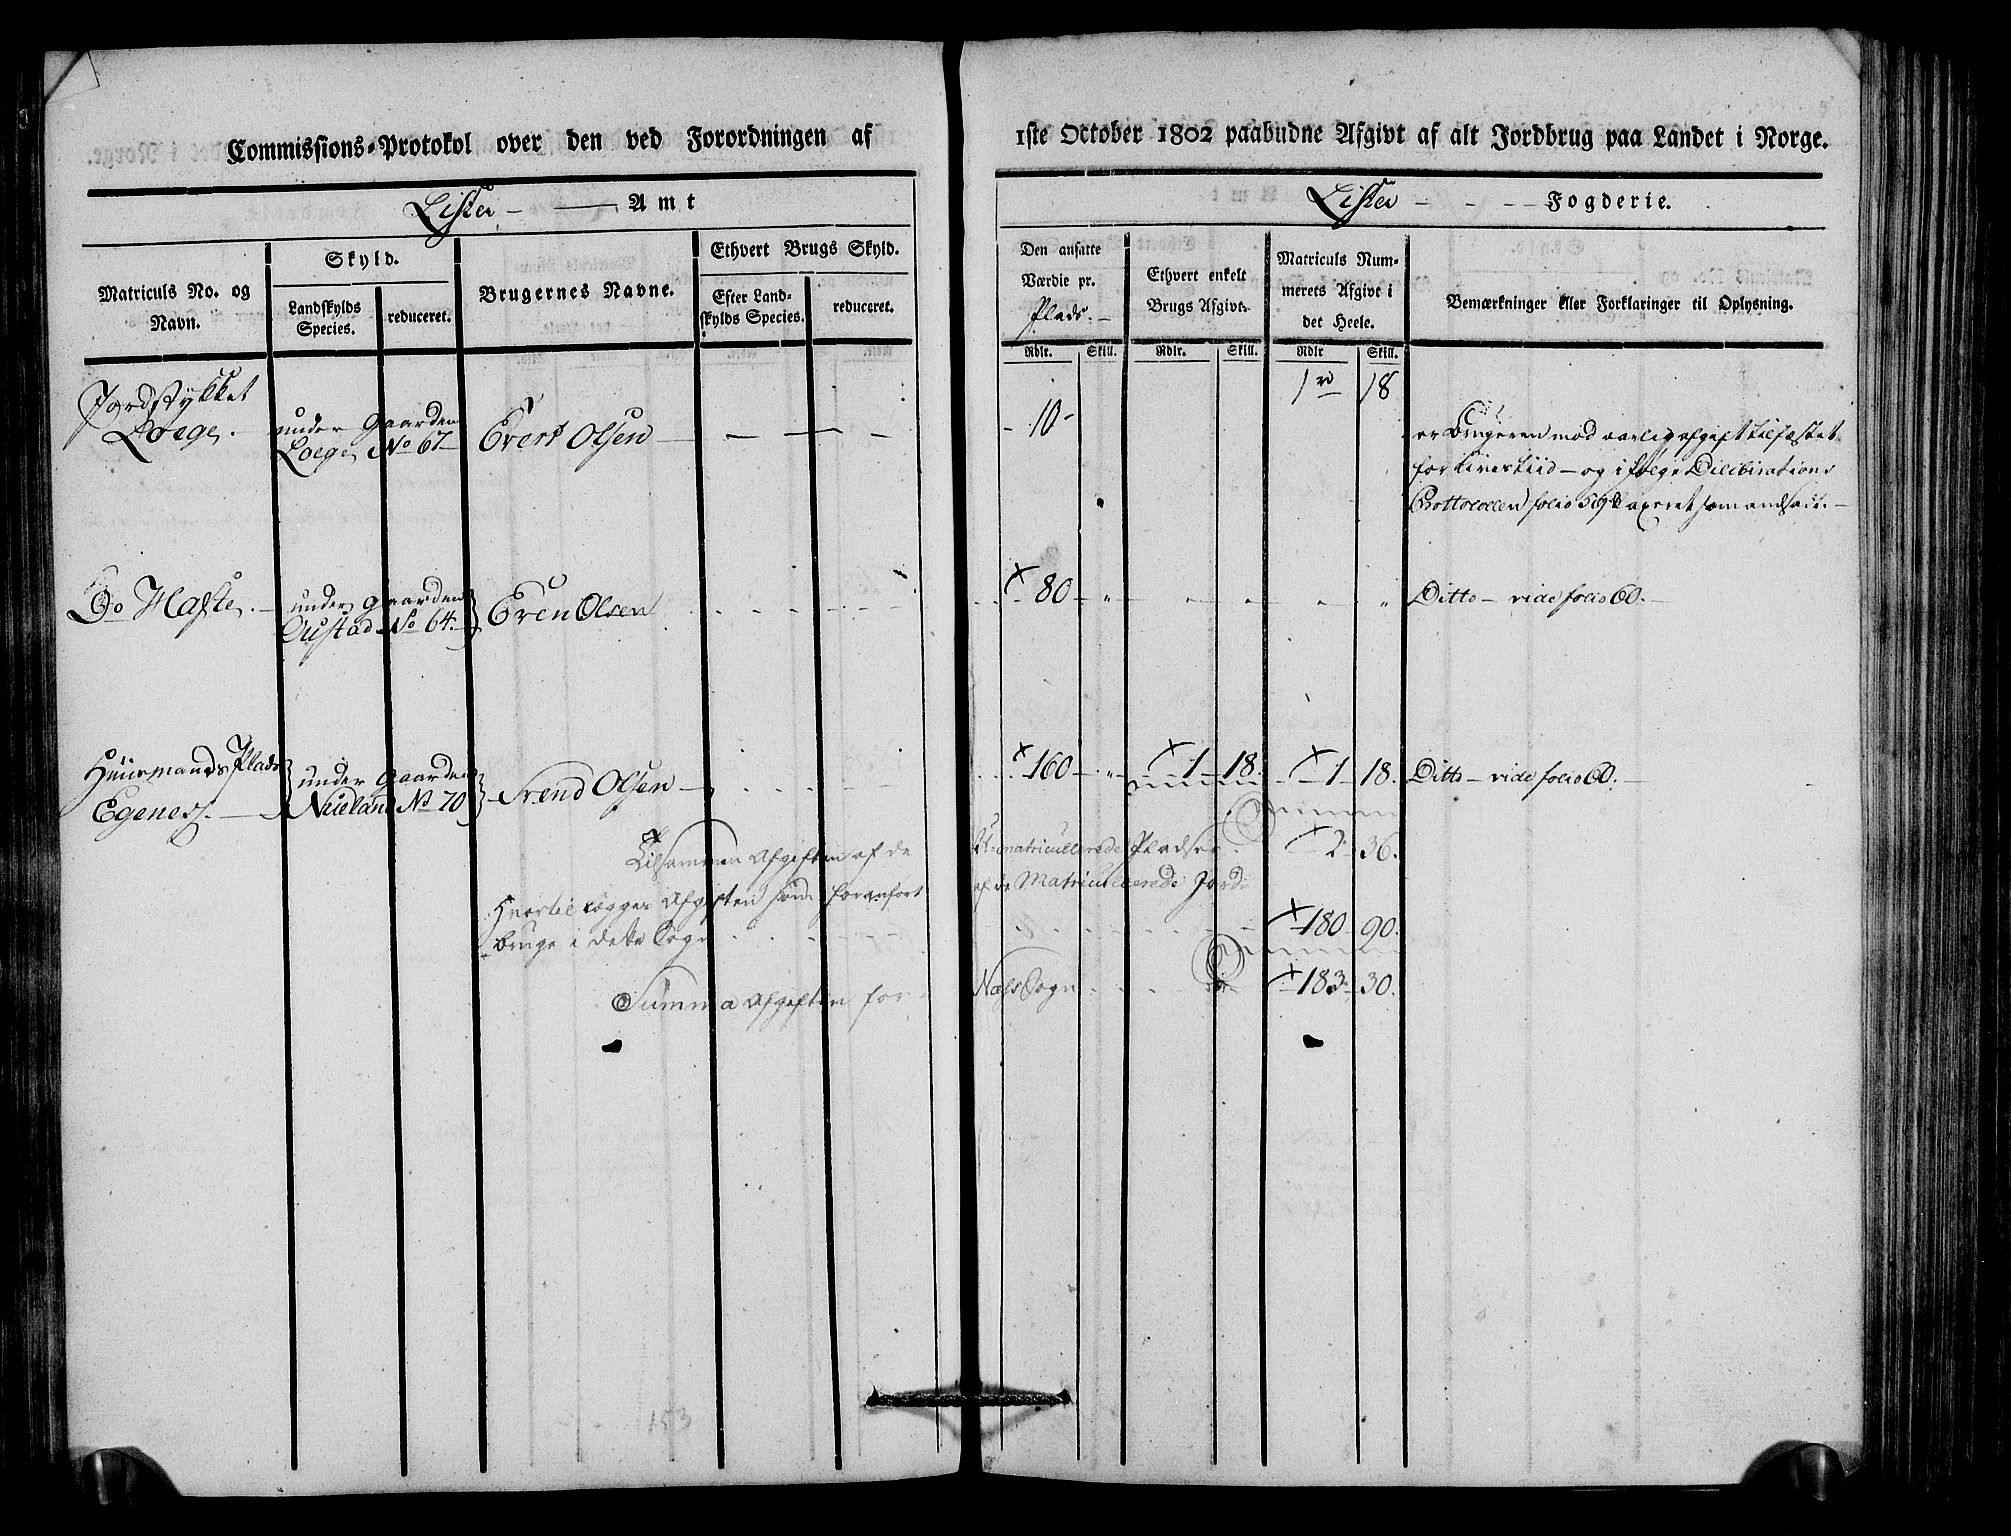 Commissions-Protokol over den ved Forordningen af
1ste October 1802 paabudne Afgivt af alt Jordbrug paa Landet i Norge.
Lister - Amt
Lister - - - - Fogderie.
Matriculs No. og Navn.
Skyld.
Landskylds Species.
reduceret.
Brugernes Navne.
Ethvert Brugs Skyld.
Efter Landskylds Species.
reduceret.
Den ansatte Værdie pr. Plads. -
Ethvert enkelt Brugs Afgivt.
Matriculs Nummerets Afgivt i det Heele.
Bemærkninger eller Forklaringer til Oplysning.
Rdlr. Skill. Rdlr. Skill. Rdlr Skill.
1 18
Jordstykket
Loege. under Gaarden Loege No 67 Evert Olsen - 10 -
er Brugeren mod aarlig afgift tilfæstet
for Livestiid - og i følge Dilibirations
Prottocollen folio 59 taxeret som andsatt. -
Do Hafte. - under Gaarden Oustad No 64. Even Olsen 80 - Ditto - vide folio 60. -
Huusmands Plads
Egeness. - under Gaarden Nueland No 70 Svend Olsen 160 1 18 1 18. Ditto - vide folio 60. -
Tilsammen Afgiften af de U-matricullerede Pladser 2 36.
Hvortil lægges Afgiften som foranført af de Matricullerede Jord-
bruge i dette Sogn 180 90.
Summa Afgiften for Næss Sogn 183 30.
153